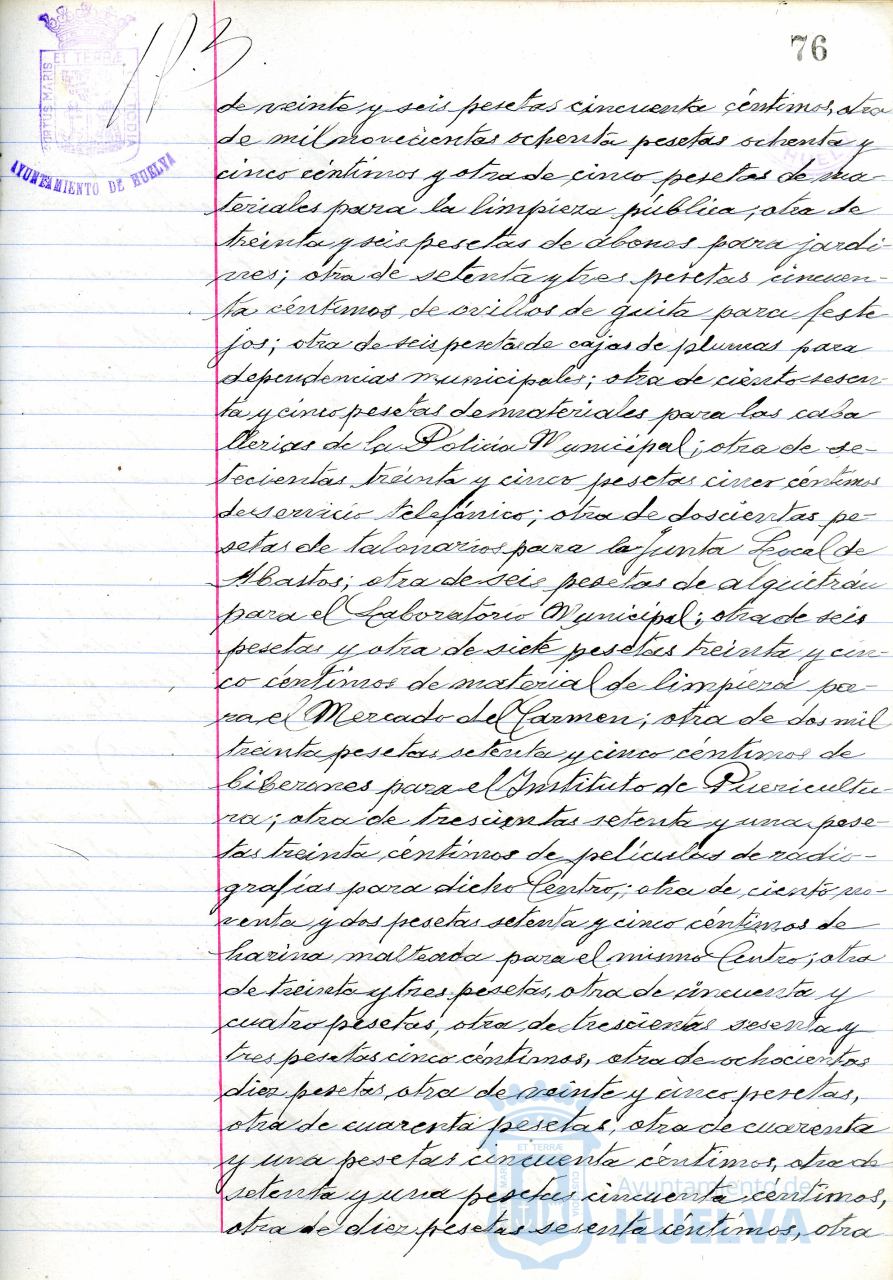 76
PORTUS MARIS ET TERRÆ CUSTODIA
AYUNTAMIENTO DE HUELVA
de veinte y seis pesetas cincuenta céntimos, otra
de mil novecientas ochenta pesetas ochenta y
cinco céntimos y otra de cinco pesetas de ma-
teriales para la limpieza pública; otra de
treinta y seis pesetas de abonos para jardi-
nes; otra de setenta y tres pesetas cincuen-
ta céntimos de ovillos de guita para feste-
jos; otra de seis pesetas de cajas de plumas para
dependencias municipales; otra de ciento sesen-
ta y cinco pesetas de materiales para las caba-
llerias de la Policia Municipal; otra de se-
tecientas treinta y cinco pesetas cinco céntimos
de servicio telefónico; otra de doscientas pe-
setas de talonarios para la Junta Local de
Abastos; otra de seis pesetas de alquitrán
para el Laboratorio Municipal; otra de seis
pesetas y otra de siete pesetas treinta y cin-
co céntimos de material de limpieza pa-
ra el Mercado del Carmen; otra de dos mil
treinta pesetas setenta y cinco céntimos de
biberones para el Instituto de Puericultu-
ra; otra de trescientas setenta y una pese-
tas treinta céntimos de películas de radio-
grafías para dicho Centro; otra de ciento no-
venta y dos pesetas setenta y cinco céntimos de
harina malteada para el mismo Centro; otra
de treinta y tres pesetas, otra de cincuenta y
cuatro pesetas, otra de trescientas sesenta y
tres pesetas cinco céntimos, otra de ochocientas
diez pesetas, otra de veinte y cinco pesetas,
otra de cuarenta pesetas, otra de cuarenta
y una pesetas cincuenta céntimos, otra de
setenta y una pesetas cincuenta céntimos,
otra de diez pesetas sesenta céntimos, otra
Ayuntamiento de
HUELVA